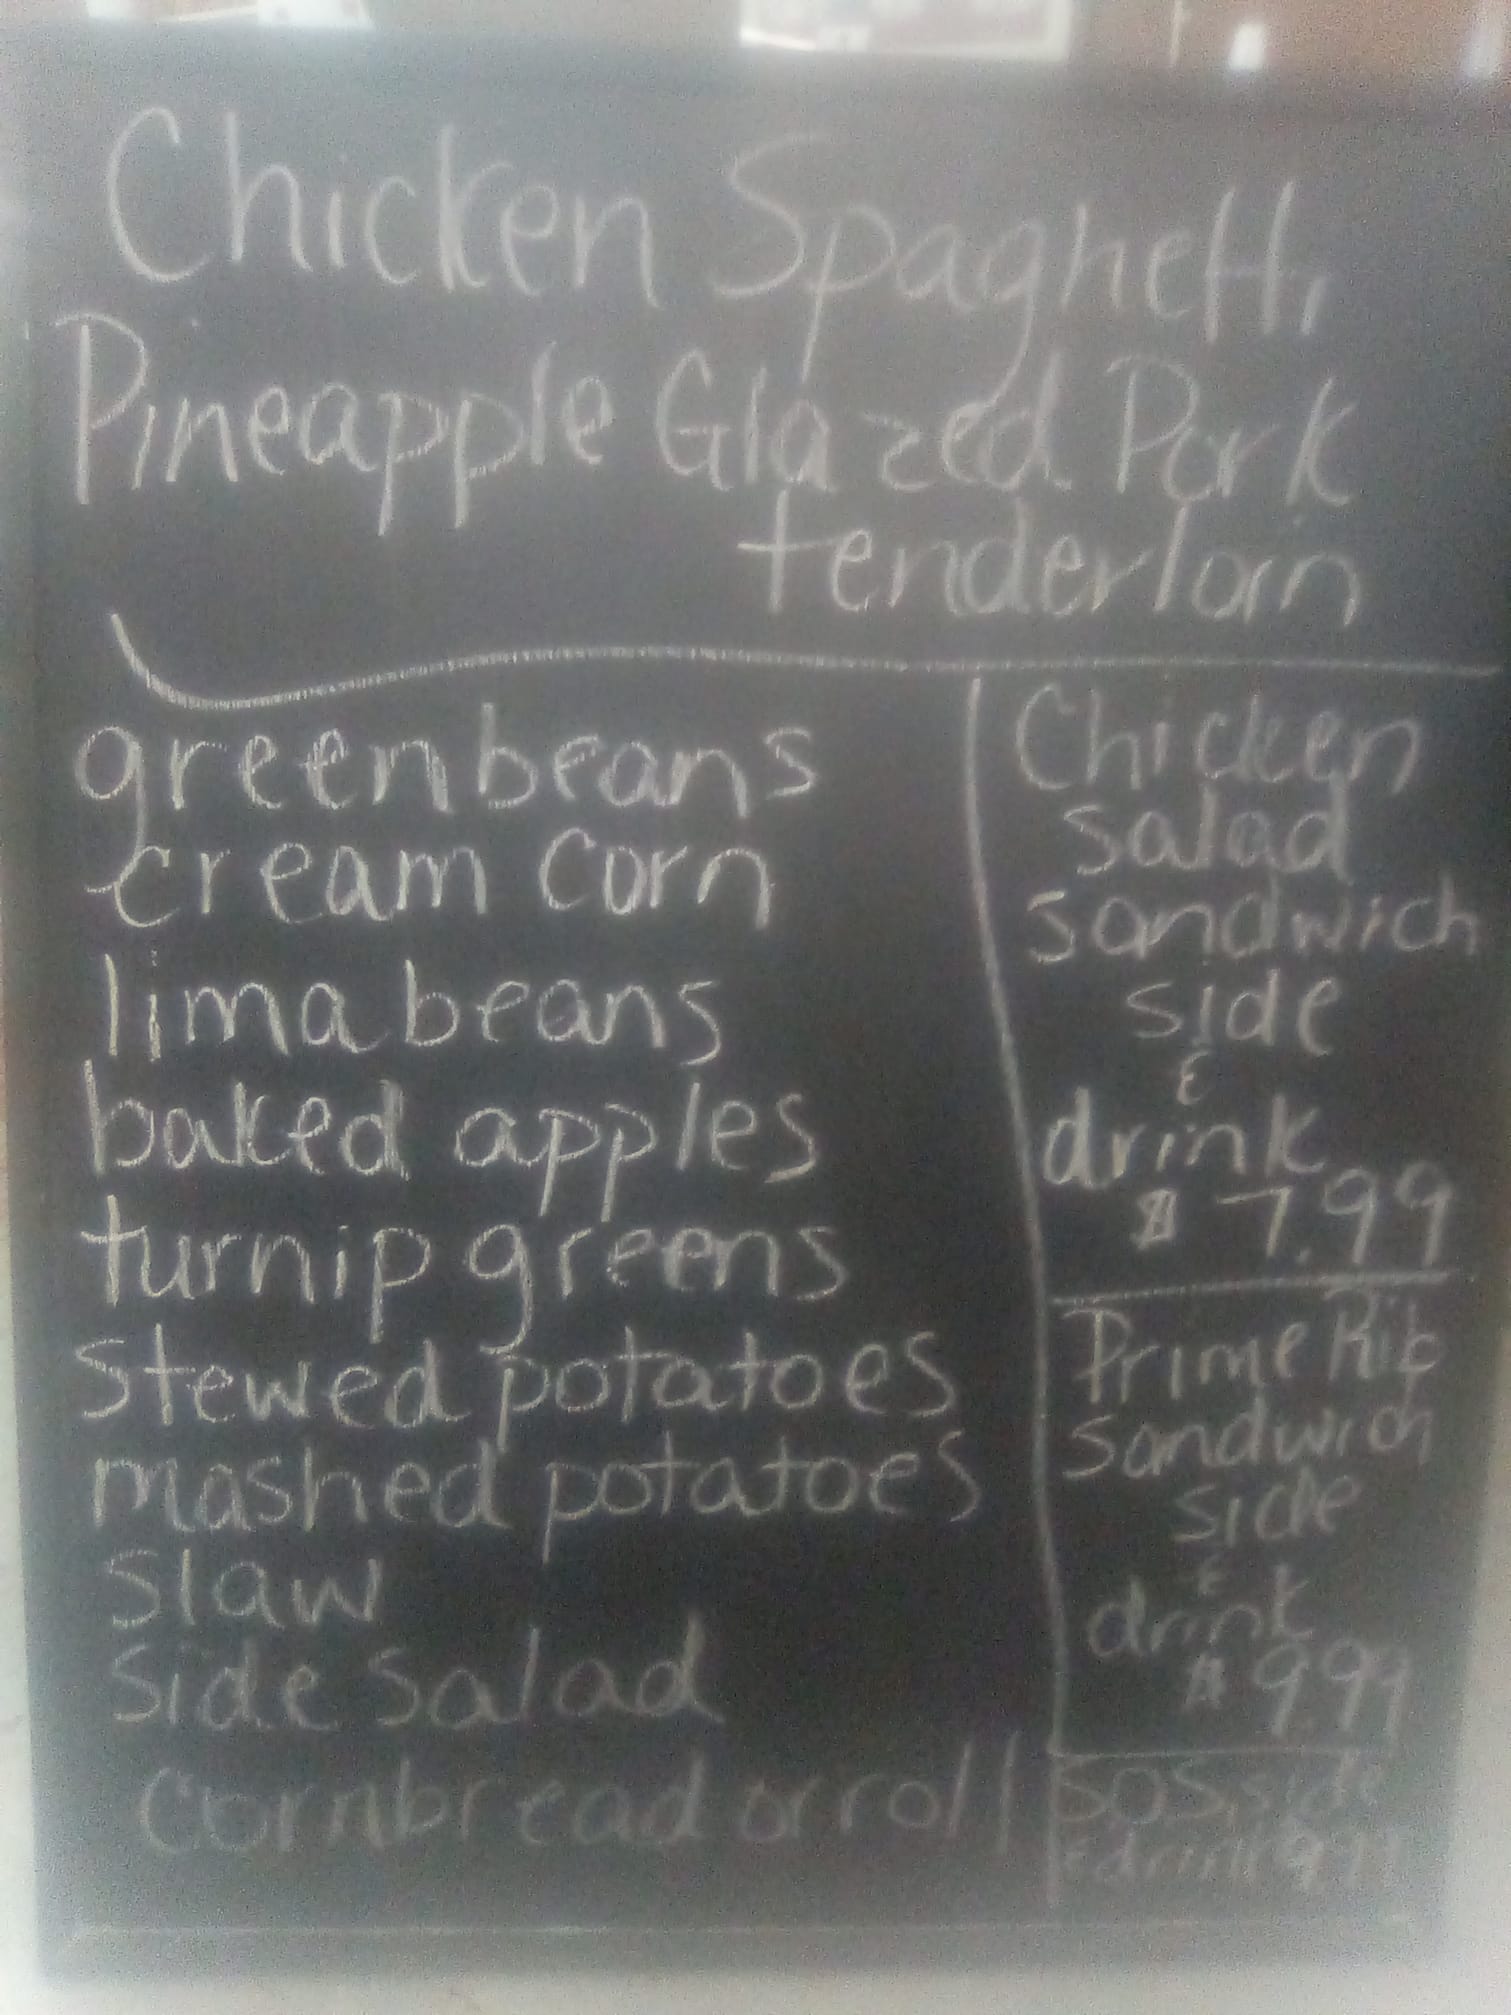 Chicken Spaghetti
Pineapple Glazed Pork
tenderloin
green beans
cream corn
lima beans
baked apples
turnip greens
stewed potatoes
mashed potatoes
slaw
side salad
cornbread or roll
Chicken
salad
sandwich
side
&
drink
$7.99
Prime Rib
sandwich
side
&
drink
$9.99
SOS, side
& drink